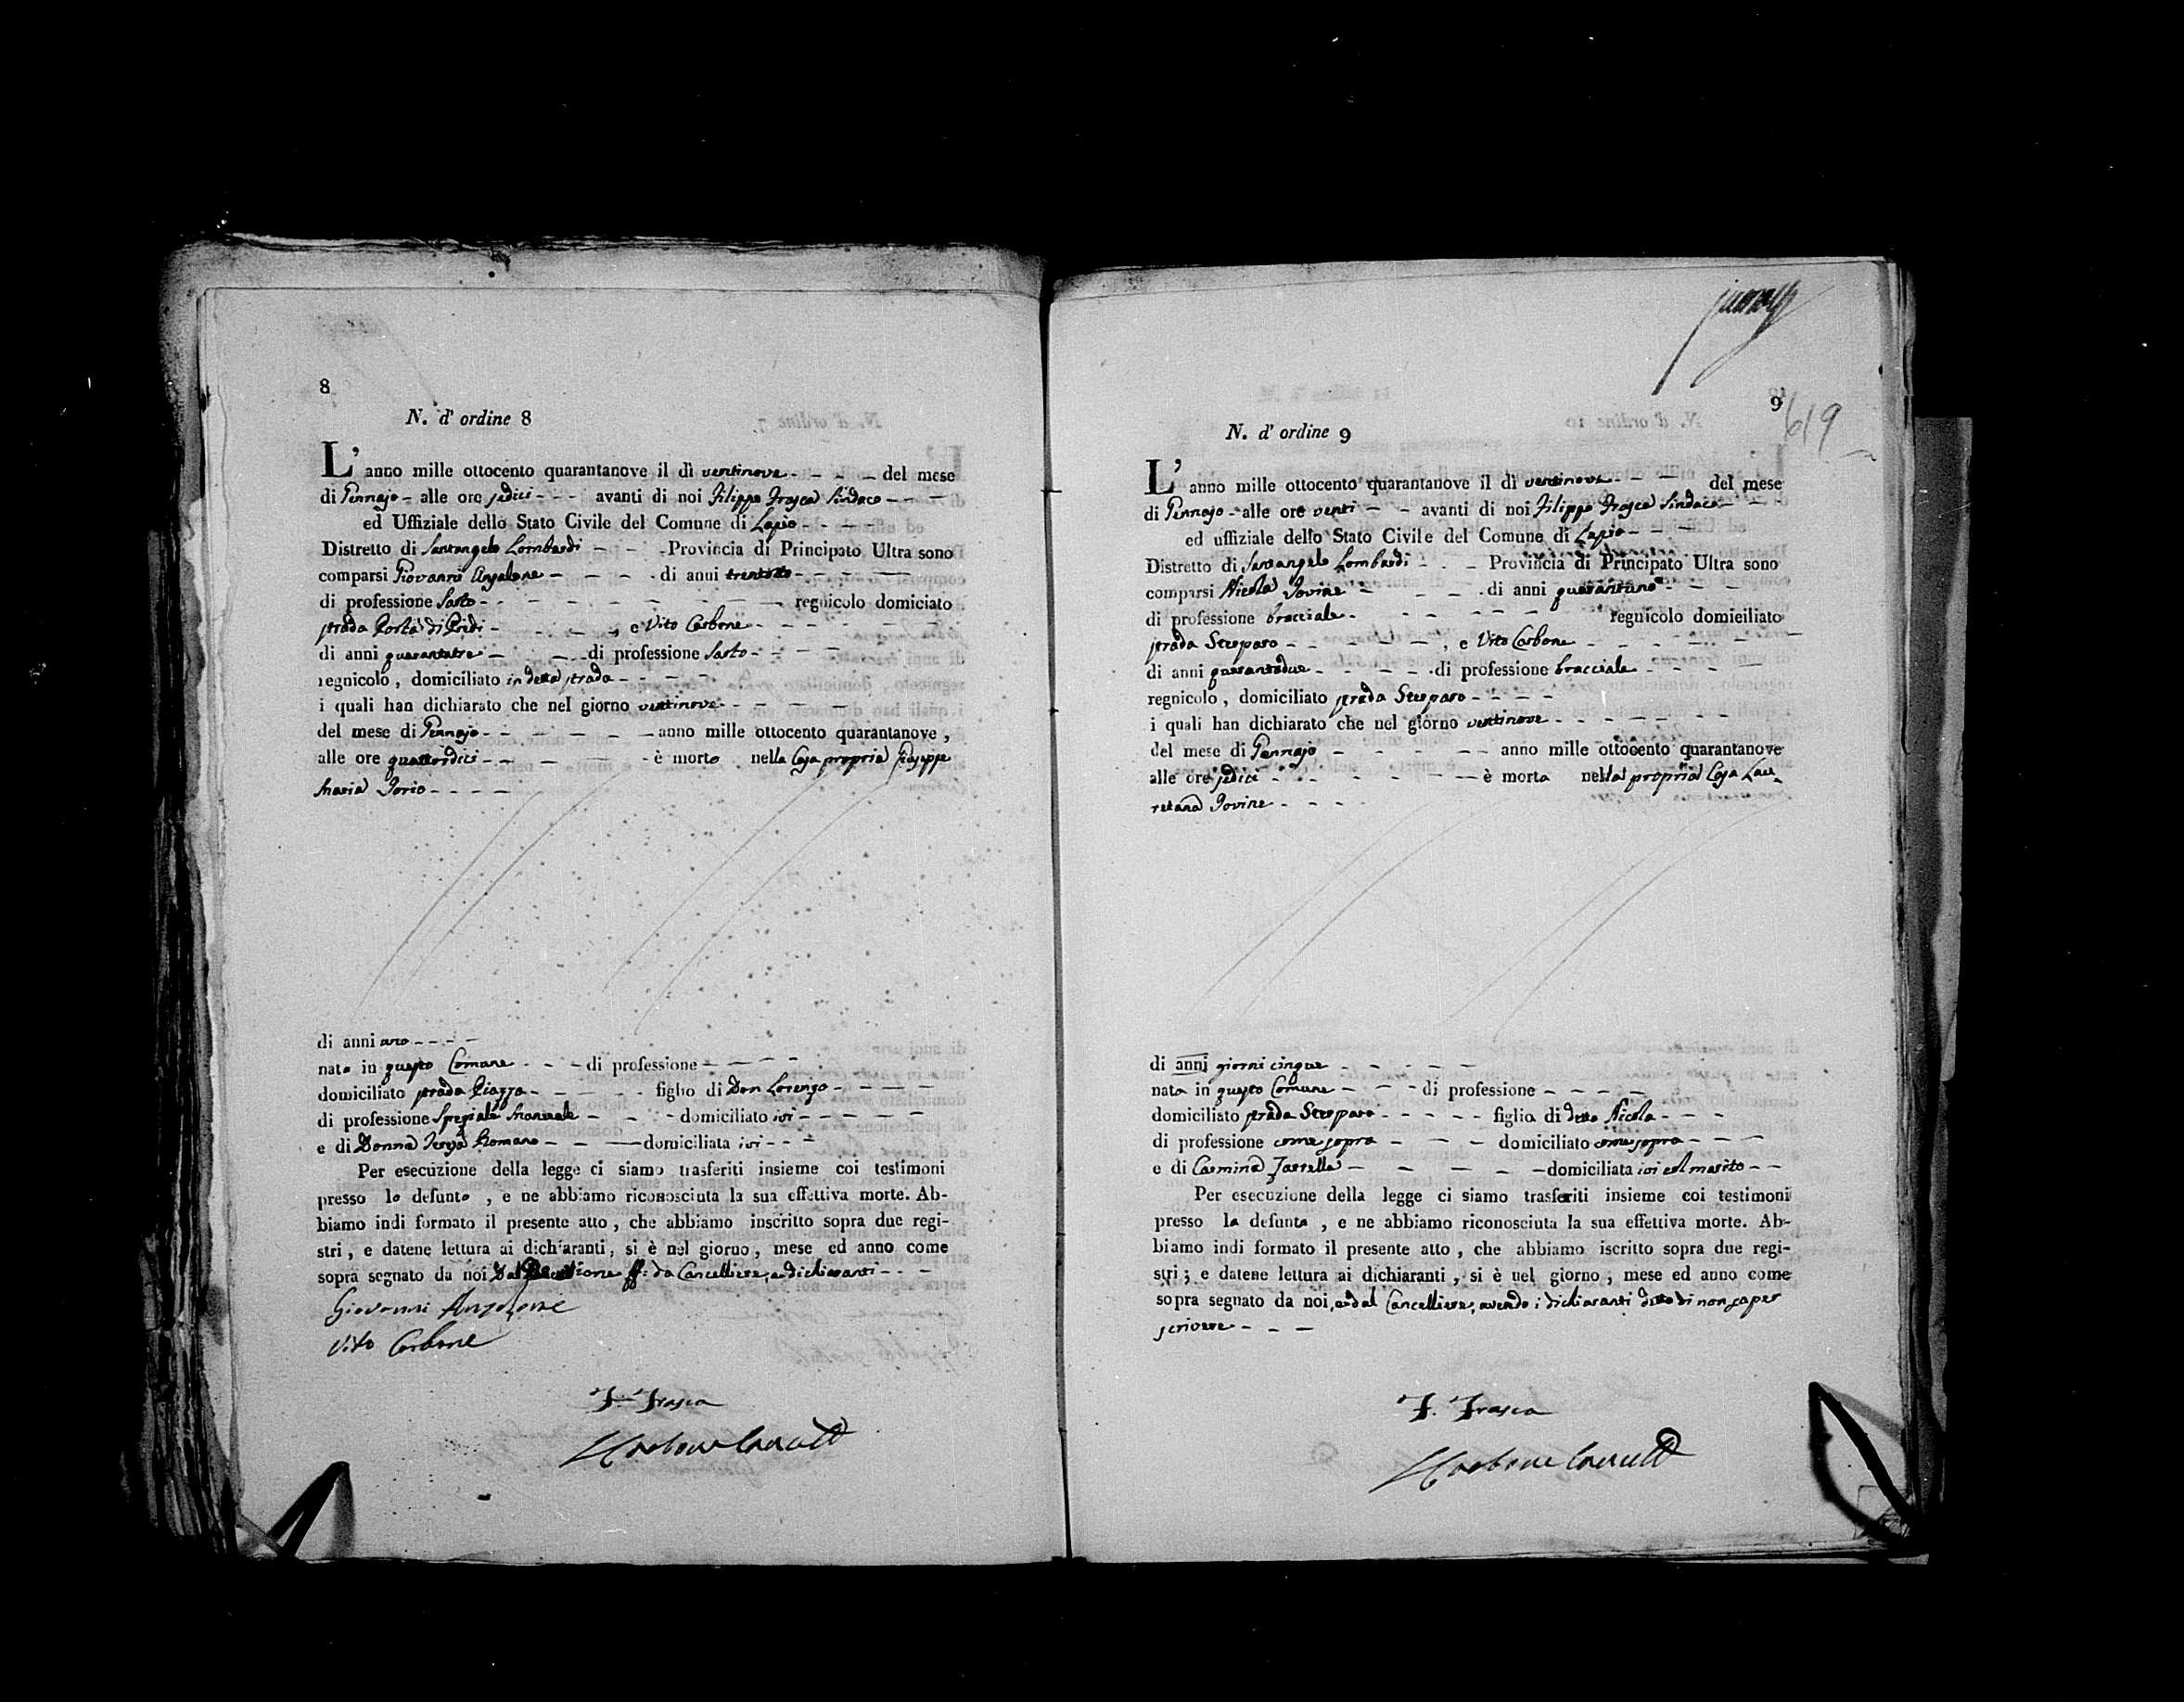 8
N. d' ordine 8
L' anno mille ottocento quarantanove il dì ventinove - - - del mese
di Gennajo - alle ore sedici - - - avanti di noi Filippo Frasca Sindaco - - -
ed Uffiziale dello Stato Civile del Comune di Lapio - - - -
Distretto di Santangelo Lombardi - - - Provincia di Principato Ultra sono
comparsi Giovanni Anzalone - - - - di anni trentotto - - - -
di professione Sarto - - - - - - - - regnicolo domiciato
strada Porta di Piedi - - - - -, e Vito Carbone - - - - - - -
di anni quarantatre - - - di professione Sarto - - - -
regnicolo, domiciliato in detta strada - - - -
i quali han dichiarato che nel giorno ventinove - - - - -
del mese di Gennajo - - - - - - anno mille ottocento quarantanove,
alle ore quattordici - - - - - è morto nella Casa propria Giuseppe
Maria Iorio - - - -
di anni uno - - - -
nato in questo Comune - - - di professione - - - -
domiciliato strada Piazza - - - - - figlio di Don Lorenzo - - - -
di professione Speziale Manuale - - - domiciliato ivi - - - - -
e di Donna Teresa Romano - - - domiciliata ivi - - -
Per esecuzione della legge ci siamo trasferiti insieme coi testimoni
presso lo defunto, e ne abbiamo riconosciuta la sua effettiva morte. Ab-
biamo indi formato il presente atto, che abbiamo inscritto sopra due regi-
stri, e datene lettura ai dichiaranti, si è nel giorno, mese ed anno come
sopra segnato da noi dal ff: da Cancelliere, e dichiaranti - - -
Giovanni Anzalone
Vito Carbone
F. Frasca
Carbone
9
619
N. d' ordine 9
L' anno mille ottocento quarantanove il dì ventinove - - - del mese
di Gennajo - alle ore venti - - avanti di noi Filippo Frasca Sindaco - -
ed uffiziale dello Stato Civile del Comune di Lapio - - -
Distretto di Santangelo Lombardi - - - Provincia di Principato Ultra sono
comparsi Nicola Iovine - - - - di anni quarantuno - - -
di professione bracciale - - - - - - regnicolo domiciliato
strada Sceoparo - - - - - -, e Vito Carbone - - - - - -
di anni quarantadue - - - - - di professione bracciale - - - -
regnicolo, domiciliato strada Sceoparo - - - -
i quali han dichiarato che nel giorno ventinove - - - - - - -
del mese di Gennajo - - - - - - anno mille ottocento quarantanove
alle ore sedici - - - - - - è morta nella propria Casa Lau-
retana Iovine - - - -
di anni giorni cinque - - - - -
nata in questo Comune - - - di professione - - - -
domiciliato strada Sceoparo - - - - - figlia di detto Nicola - - -
di professione come sopra - - - domiciliato come sopra - - -
e di Carmina Zarrella - - - - - domiciliata ivi col marito - -
Per esecuzione della legge ci siamo trasferiti insieme coi testimoni
presso la defunta, e ne abbiamo riconosciuta la sua effettiva morte. Ab-
biamo indi formato il presente atto, che abbiamo iscritto sopra due regi-
stri; e datene lettura ai dichiaranti, si è nel giorno, mese ed anno come
sopra segnato da noi, e dal Cancelliere, avendo i dichiaranti detto di non saper
scrivere - - -
F. Frasca
Carbone